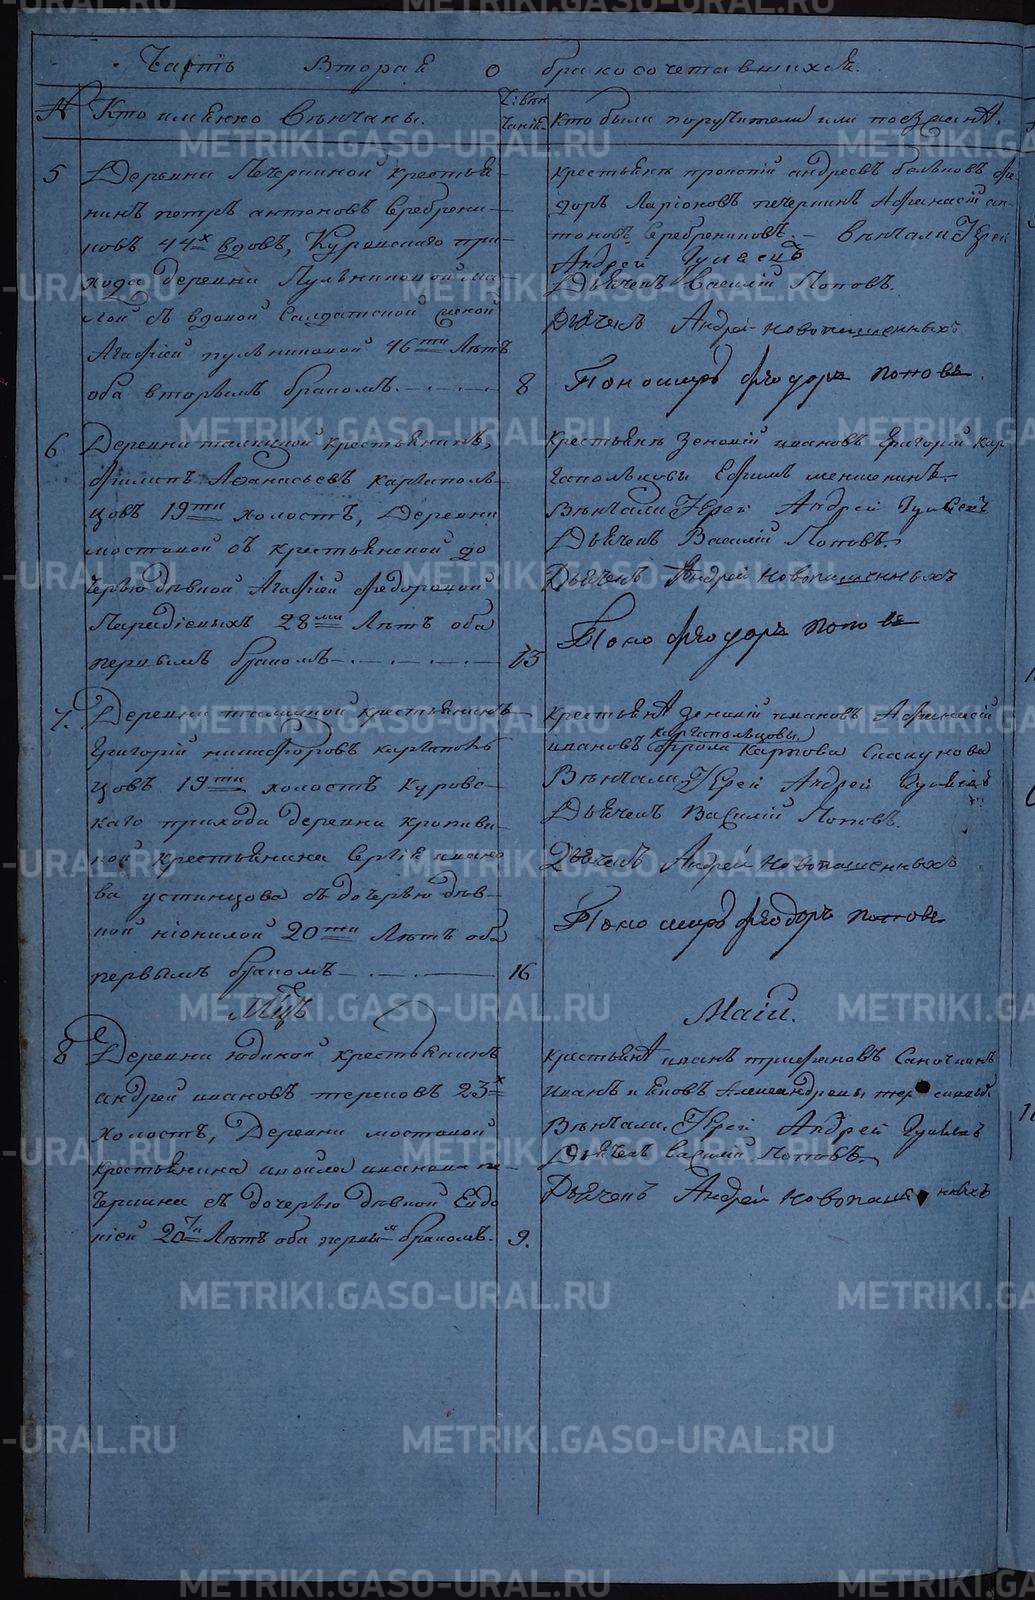 Часть Вторая о бракосочетавшихся.
№ Кто именно Венчаны.
Ч: вѣн
чанiя
Кто были поручители или поезжанѣ.
5 Деревни Печеркиной крестья-
нинъ петръ антоновъ Серебрени-
ковъ 44х вдовъ, Куровскаго при-
хода деревни Пульниковой
съ вдовой Салдатской женой
Агафіей пульниковой 46ти Лѣтъ
оба вторымъ бракомъ. 8
крестьянѣ андреевъ
доръ Ларіоновъ печеркинъ Афанасій ан-
тоновъ Серебрениковъ. — Вѣнчали Іерей
Андрей
Дьячекъ Василій Поповъ.
Дьячекъ Андрей Новопашенныхъ
Понамарь Феодоръ поповъ.
6 Деревни талицкой крестьянинъ,
Филипъ Афанасьевъ Каргаполь-
цовъ 19ти холостъ, Деревни
мостовой съ крестьянской до
черью дѣвкой Агафіей Федоровой
28ми Лѣтъ оба
первымъ бракомъ 13
крестьянѣ Зеновій ивановъ Григорій Кар-
гапольцовы Ефимъ
Вѣнчали Іерей Андрей
Дьячекъ Василій Поповъ.
Дьячекъ Андрей Новопашенныхъ
Поно Феодоръ поповъ
7. Деревни талицкой крестьянинъ
Григорій никифоровъ каргаполь
цовъ 19ти холостъ Куровс-
каго прихода деревни кропиви-
ной крестьянина Сергія ивано
ва устинцова съ дочерью дѣв-
кой нiонилой 20ти Лѣтъ оба
первымъ бракомъ 16
крестьянѣ Зеновій ивановъ Афанасій
ивановъ Каргапольцовы, фрола Карпова Скакунова
Вѣнчали Іерей Андрей
Дьячекъ Василій Поповъ.
Дьячекъ Андрей Новопашенныхъ
Понамарь Феодоръ поповъ
Мцъ Маій.
8 Деревни юдиной крестьянинъ
андрей ивановъ тереховъ 23х
холостъ, Деревни мостовой
крестьянина иванова пе-
черкина съ дочерью дѣвкой Евдо
кіей 20ти Лѣтъ оба первы бракомъ. 9.
крестьянѣ иванъ трифановъ
иванъ Александровы
Вѣнчали, Іерей Андрей
Дьячекъ василій Поповъ.
Дьячекъ Андрей Новопашенныхъ
METRIKI.GASO-URAL.RU